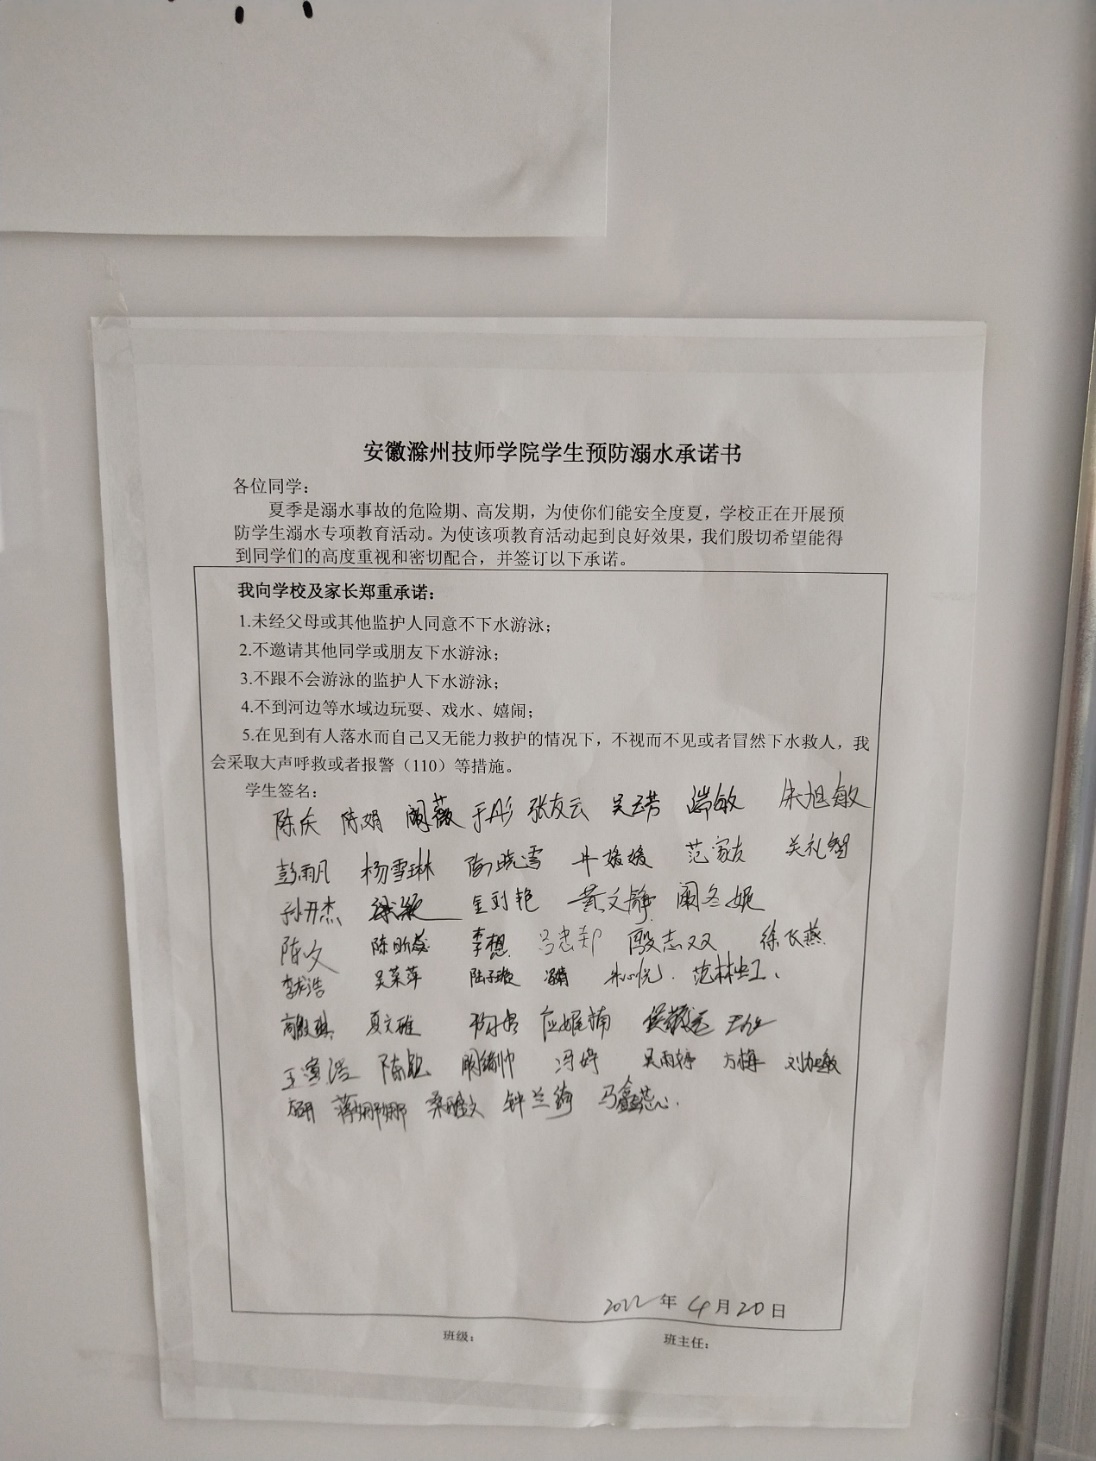 安徽滁州技师学院学生预防溺水承诺书
各位同学：
夏季是溺水事故的危险期、高发期，为使你们能安全度夏，学校正在开展预
防学生溺水专项教育活动。为使该项教育活动起到良好效果，我们殷切希望能得
到同学们的高度重视和密切配合，并签订以下承诺。
我向学校及家长郑重承诺：
1.未经父母或其他监护人同意不下水游泳；
2.不邀请其他同学或朋友下水游泳；
3.不跟不会游泳的监护人下水游泳；
4.不到河边等水域边玩耍、戏水、嬉闹；
5.在见到有人落水而自己又无能力救护的情况下，不视而不见或者冒然下水救人，我
会采取大声呼救或者报警（110）等措施。
学生签名：
陈庆 陈娟 阚薇 于彤 张友云 朱旭敏
彭雨凡 杨雪琳 陶晓雪 牛媛媛 范家友 关礼智
孙开杰 黄文静 阚冬妮
陈文 李想 吕忠郑 殷志双 徐长燕
李龙浩 吴荣萍 陆子璇 朱心悦 范林虹
夏文雅
王寅浩 陈聪 冯婷 吴雨婷 方梅
蒋娜娜 桑雅文 钟兰绮 马鑫蕊
2022年4月20日
班级： 班主任：